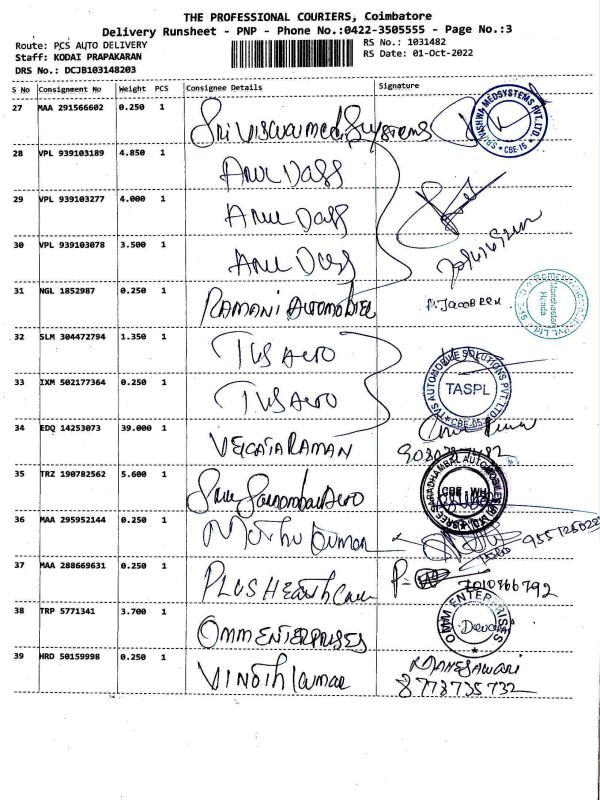 THE PROFESSIONAL COURIERS, Coimbatore
Delivery Runsheet - PNP - Phone No.:0422-3505555 - Page No.:3
Route: PCS AUTO DELIVERY
RS No.: 1031482
Staff: KODAI PRAPAKARAN
RS Date: 01-Oct-2022
DRS No.: DCJB103148203
S No Consignment No Weight PCS Consignee Details Signature
27 MAA 291566602 0.250 1 Sri Viswa Med Systems
SRI VISHWA MEDSYSTEMS PVT. LTD. * CBE-15 *
28 VPL 939103189 4.850 1 Arul Dass
29 VPL 939103277 4.000 1 Arul Dass
30 VPL 939103078 3.500 1 Arul Dass
31 NGL 1852987 0.250 1 RAMANI AUTOMOBILES P. Jacob
32 SLM 304472794 1.350 1 TVS Auto
33 IXM 502177364 0.250 1 TVS Auto
TVS AUTOMOBILE SOLUTIONS PVT. LTD. TASPL * CBE-05 *
34 EDQ 14253073 39.000 1 VENCATARAMAN
35 TRZ 190782562 5.600 1 Auto
CBE - WH
36 MAA 295952144 0.250 1 Muthu kumar
37 MAA 288669631 0.250 1 PLUS Health Care 7010766792
38 TRP 5771341 3.700 1 OMM ENTERPRISES
OMM ENTERPRISES
39 HRD 50159998 0.250 1 Vinoth kumar
8778735732